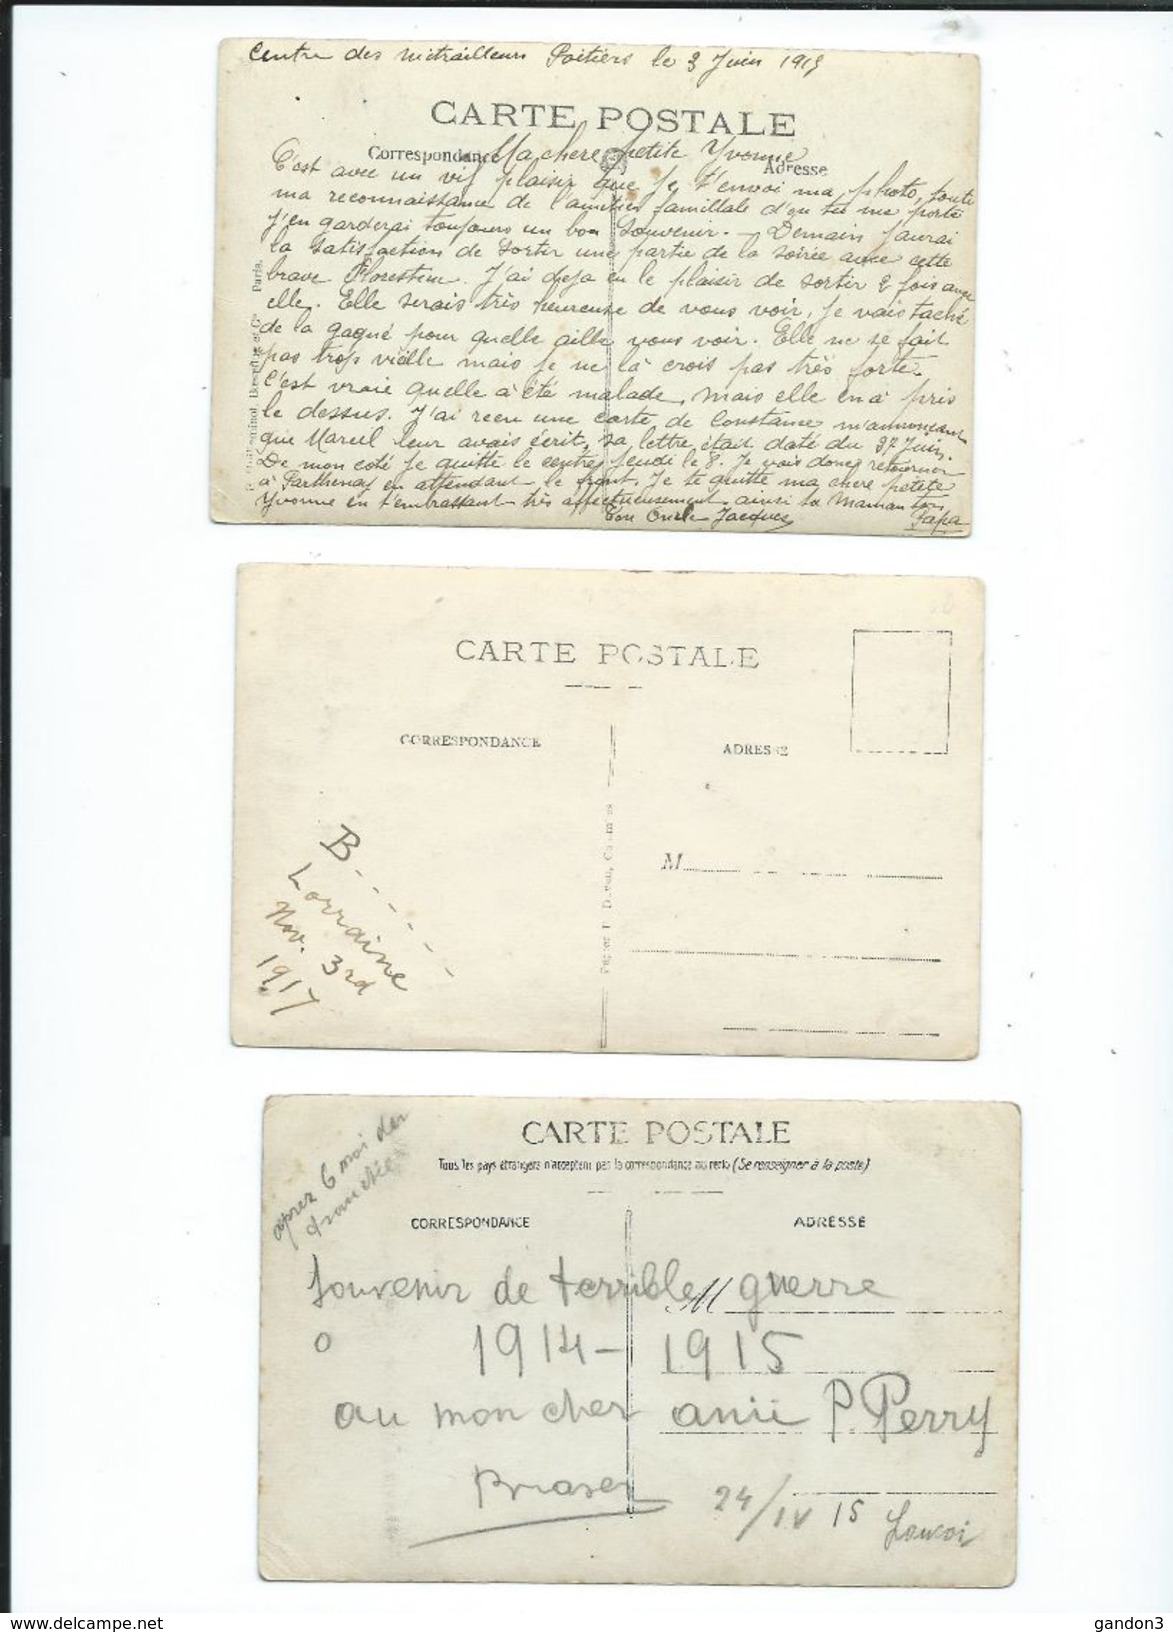 Centre des mitrailleurs Poitiers le 3 Juin 1915
CARTE POSTALE
Correspondance
Adresse
Ma chere petite Yvonne
C'est avec un vif plaisir que je t'envoi ma photo, toute
ma reconnaissance de l'amitier familiale d'on tu me porte
j'en garderai toujours un bon Souvenir. — Demain j'aurai
la satisfaction de sortir une partie de la soirée avec cette
brave Florestine. J'ai deja eu le plaisir de sortir 2 fois avec
elle. Elle serais très heureuse de vous voir, je vais taché
de la gagné pour quelle aille vous voir. Elle ne se fait
pas trop vieille mais je ne la crois pas très forte.
C'est vraie quelle à été malade, mais elle en a pris
le dessus. J'ai recu une carte de Constance m'annonceant
que Marcel leur avais écrit, sa lettre était daté du 27 Juin.
De mon coté je quitte le centre jeudi le 8. Je vais donc retourner
à Parthenay en attendant le front. Je te quitte ma chere petite
Yvonne en t'embrassant très affectueusement ainsi ta Maman ton
Papa
Ton Oncle Jacques
Paris.
CARTE POSTALE
CORRESPONDANCE
ADRESSE
M
B------
Lorraine
Nov. 3rd
1917
aprez 6 moi der
tranchée
CARTE POSTALE
Tous les pays étrangers n'acceptent pas la correspondance au recto (Se renseigner à la poste)
CORRESPONDANCE
ADRESSE
M
Souvenir de terrible guerre
o 1914 - 1915
au mon cher amii P. Perry
24/IV 15
delcampe.net
gandon3